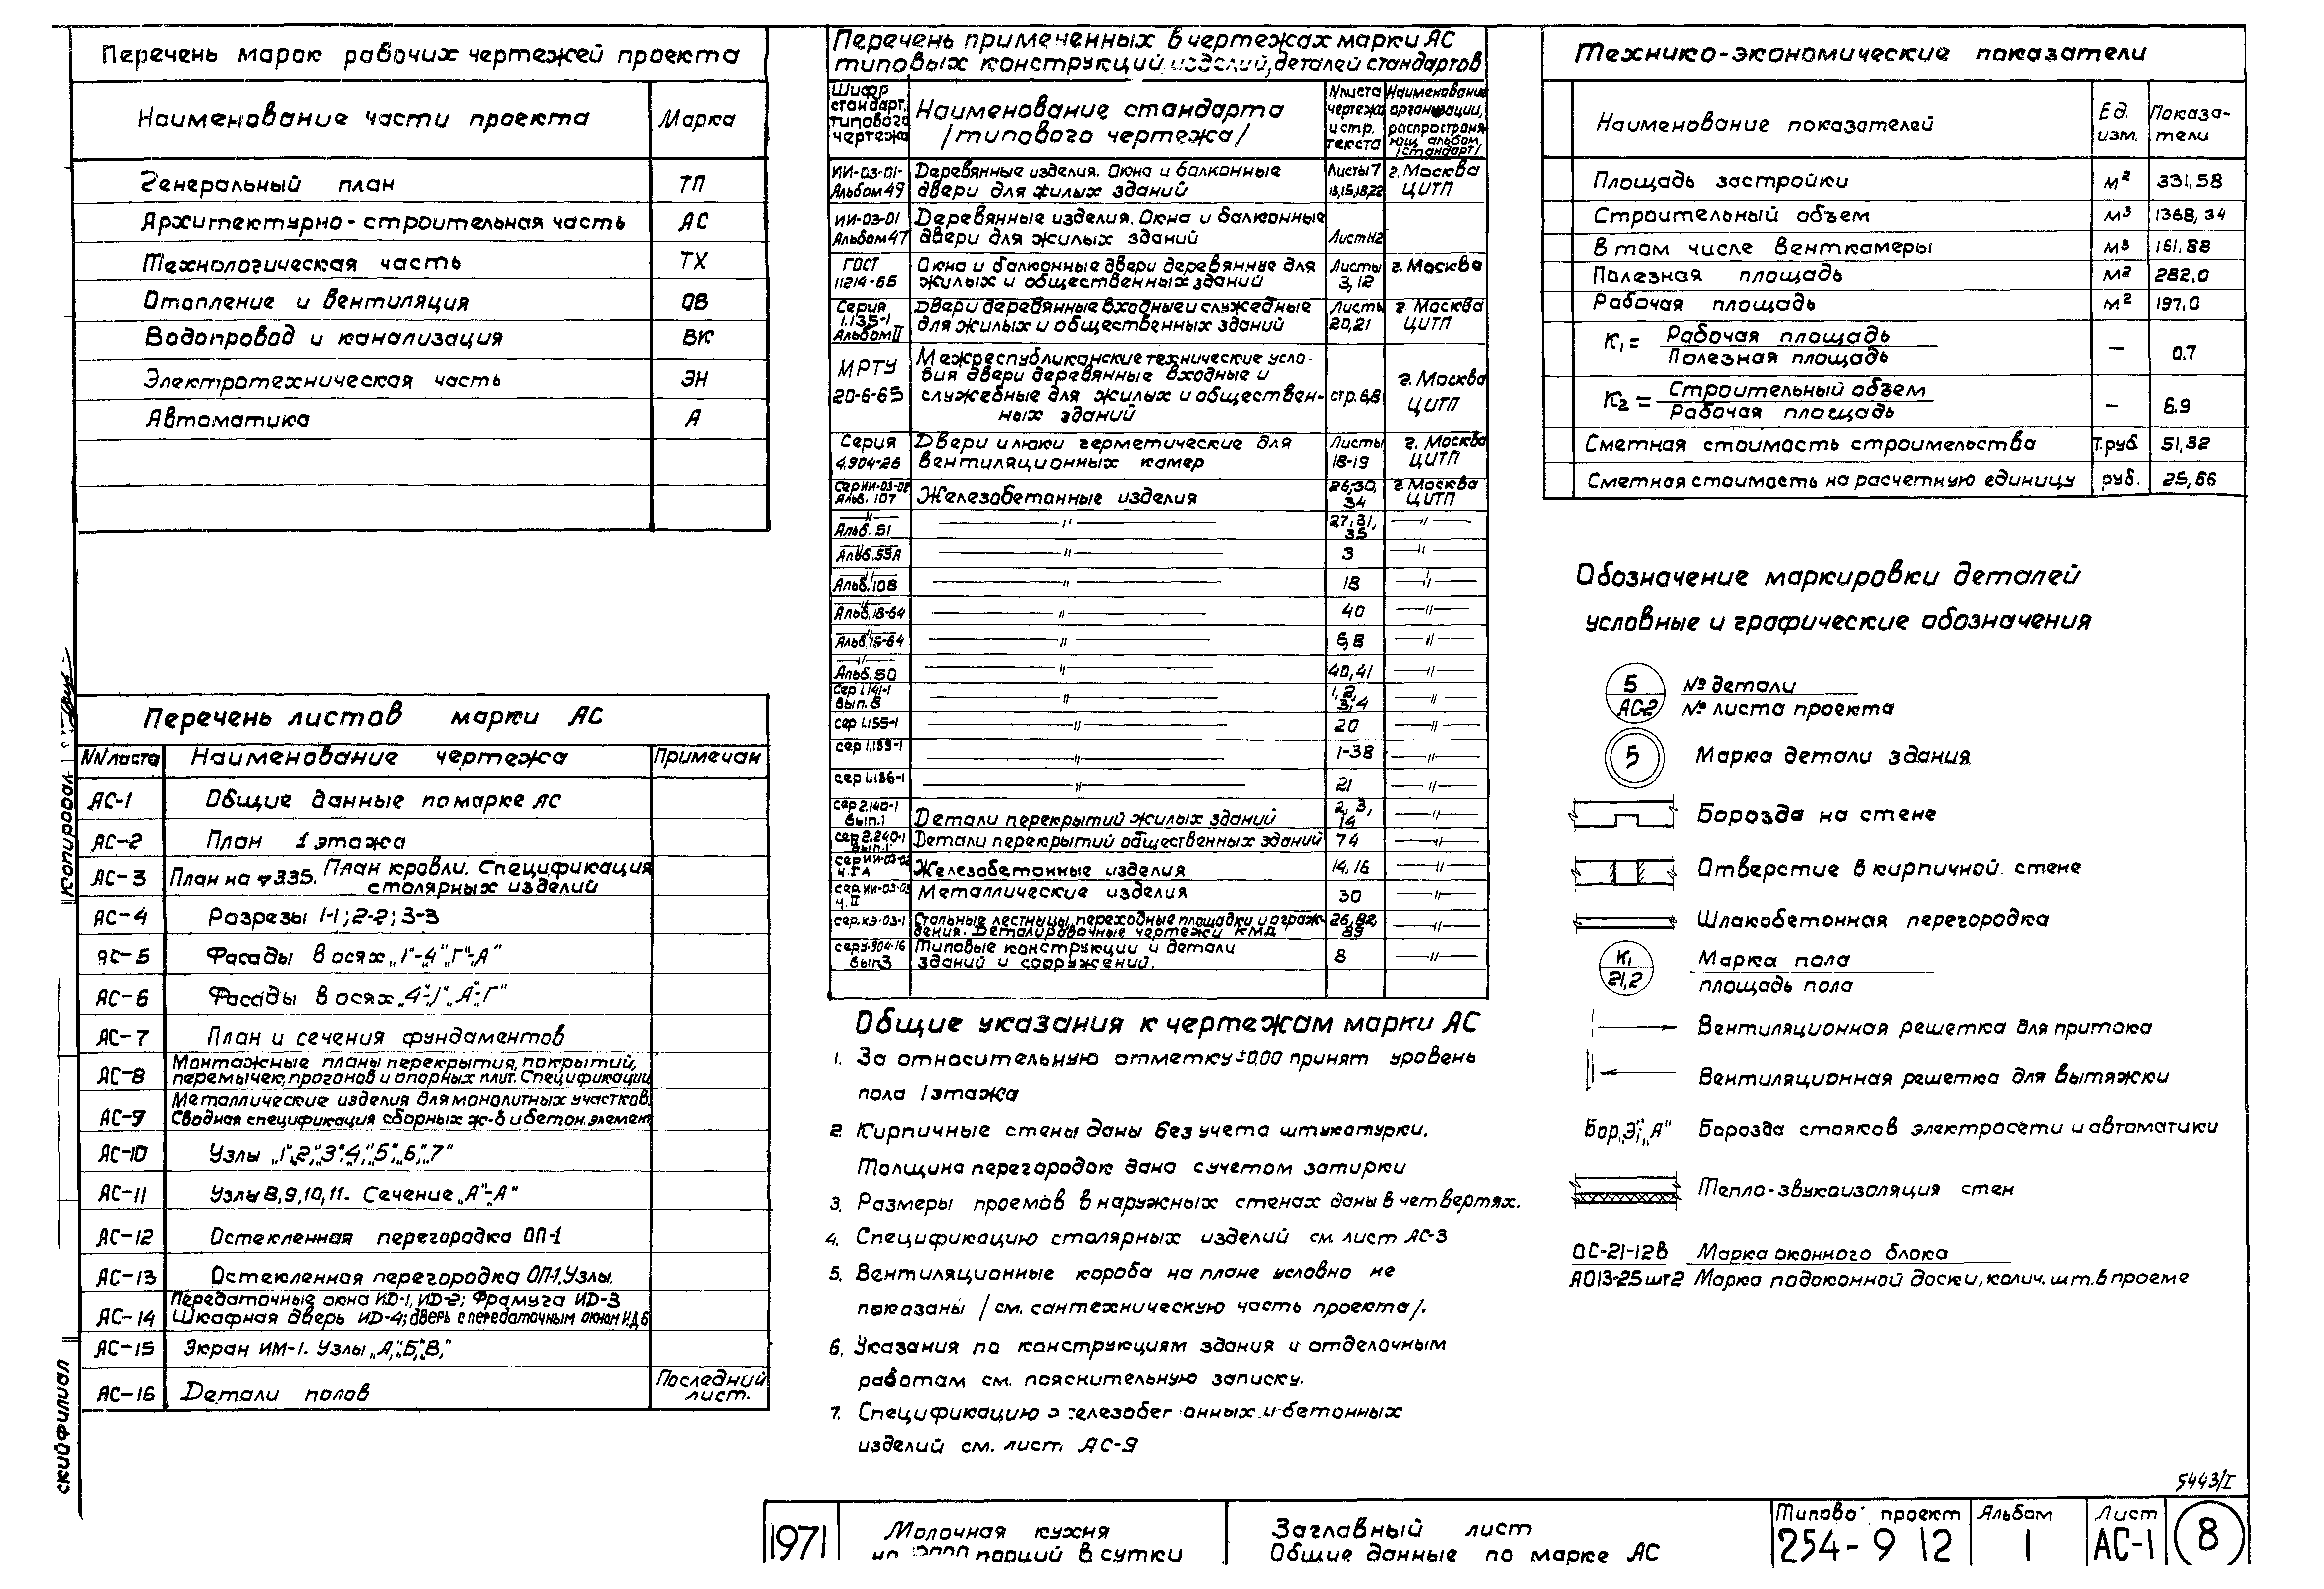 Перечень марок рабочих чертежей проекта
Наименование части проекта Марка
Генеральный план ТП
Архитектурно-строительная часть АС
Технологическая часть ТХ
Отопление и вентиляция ОВ
Водопровод и канализация ВК
Электротехническая часть ЭН
Автоматика А
Перечень листов марки АС
NN листа Наименование чертежа Примечан
АС-1 Общие данные по марке АС
АС-2 План 1 этажа
АС-3 План на 3.35. План кровли. Спецификация
столярных изделий
АС-4 Разрезы 1-1; 2-2; 3-3
АС-5 Фасады в осях „1"-„4" „Г"-„А"
АС-6 Фасады в осях „4"-„1" „А"-„Г"
АС-7 План и сечения фундаментов
АС-8 Монтажные планы перекрытия, покрытий,
перемычек, прогонов и опорных плит. Спецификации
АС-9 Металлические изделия для монолитных участков.
Сводная спецификация сборных ж-б и бетон. элемент
АС-10 Узлы „1", „2", „3", „4", „5", „6", „7"
АС-11 Узлы 8, 9, 10, 11. Сечение „А"-„А"
АС-12 Остекленная перегородка ОП-1
АС-13 Остекленная перегородка ОП-1. Узлы.
АС-14 Передаточные окна ИD-1, ИD-2; Фрамуга ИD-3
Шкафная дверь ИD-4; дверь с передаточным окном
АС-15 Экран ИМ-1. Узлы „А", „Б", „В"
АС-16 Детали полов Последний
лист.
Копировал
ский филиал
Перечень примененных в чертежах марки АС
типовых конструкций, изделий, деталей стандартов
Шифр
стандарт.
типового
чертежа
Наименование стандарта
/типового чертежа/
N листа
чертежа
и стр.
текста
Наименование
организации,
распространя-
ющ. альбом,
/стандарт/
ИИ-03-01- Деревянные изделия. Окна и балконные Листы 7 г. Москва
Альбом 49 двери для жилых зданий 13,15,18,22 ЦИТП
ИИ-03-01 Деревянные изделия. Окна и балконные
Альбом 47 двери для жилых зданий Лист
ГОСТ Окна и балконные двери деревянные для Листы г. Москва
11214-65 жилых и общественных зданий 3, 12
Серия Двери деревянные входные и служебные Листы г. Москва
1.135-1 для жилых и общественных зданий 20,21 ЦИТП
Альбом II
МРТУ Межреспубликанские технические усло-
вия двери деревянные входные и г. Москва
20-6-65 служебные для жилых и обществен- стр. 6,8 ЦИТП
ных зданий
Серия Двери и люки герметические для Листы г. Москва
4.904-26 вентиляционных камер 18-19 ЦИТП
Сер ИИ-03-02 Железобетонные изделия 26,30, г. Москва
Альб. 107 34 ЦИТП
—"— —"— 27, 31, —"—
Альб. 51 35
Альб. 55А —"— 3 —"—
Альб. 108 —"— 18 —"—
Альб. 18-64 —"— 40 —"—
Альб. 15-64 —"— 6,8 —"—
Альб. 50 —"— 40, 41 —"—
Сер 1.141-1 —"— 1, 2, —"—
вып. 8 3, 4
сер 1.155-1 —"— 20 —"—
сер 1.189-1 —"— 1-38 —"—
сер 1.186-1 —"— 21 —"—
сер 2.140-1 Детали перекрытий жилых зданий 2, 3, —"—
вып. 1 14
сер 2.240-1 Детали перекрытий общественных зданий 74 —"—
вып. 1
сер ИИ-03-02 Железобетонные изделия 14, 16 —"—
сер ИИ-03-03 Металлические изделия 30 —"—
ч. II
сер. КЭ-03-1 Стальные лестницы, переходные площадки и ограж- 26, 82, —"—
дения. Деталировочные чертежи КМД 89
сер 4.904-16 Типовые конструкции и детали 8 —"—
вып 3 зданий и сооружений.
Общие указания к чертежам марки АС
1. За относительную отметку ±0,00 принят уровень
пола 1 этажа
2. Кирпичные стены даны без учета штукатурки.
Толщина перегородок дана с учетом затирки
3. Размеры проемов в наружных стенах даны в четвертях.
4. Спецификацию столярных изделий см. лист АС-3
5. Вентиляционные короба на плане условно не
показаны /см. сантехническую часть проекта/.
6. Указания по конструкциям здания и отделочным
работам см. пояснительную записку.
7. Спецификацию железобетонных и бетонных
изделий см. лист АС-9
Технико-экономические показатели
Наименование показателей Ед. изм. Показа-
тели
Площадь застройки м² 331,58
Строительный объем м³ 1368,34
В том числе венткамеры м³ 161,88
Полезная площадь м² 282,0
Рабочая площадь м² 197.0
К₁ = Рабочая площадь / Полезная площадь — 0.7
К₂ = Строительный объем / Рабочая площадь — 6.9
Сметная стоимость строительства Т.руб. 51,32
Сметная стоимость на расчетную единицу руб. 25,66
Обозначение маркировки деталей
условные и графические обозначения
5 № детали
АС-2 № листа проекта
5 Марка детали здания
Борозда на стене
Отверстие в кирпичной стене
Шлакобетонная перегородка
К₁ Марка пола
21,2 площадь пола
Вентиляционная решетка для притока
Вентиляционная решетка для вытяжки
Бор. „Э", „А" Борозда стояков электросети и автоматики
Тепло-звукоизоляция стен
ОС-21-12В Марка оконного блока
ЯО13-25 шт 2 Марка подоконной доски, колич. шт. в проеме
5443/I
1971
Молочная кухня
порций в сутки
Заглавный лист
Общие данные по марке АС
Типово проект
254-9 12
Альбом
1
Лист
АС-1
8